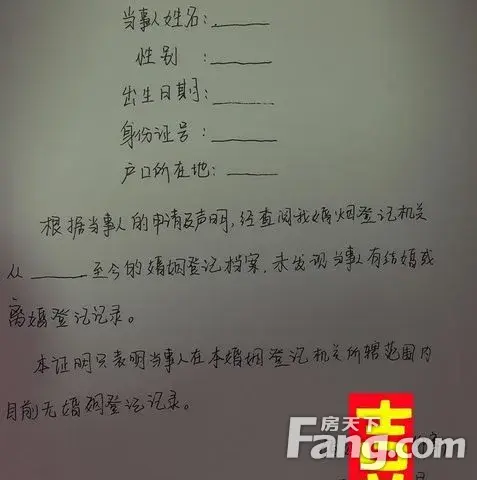 当事人姓名:____
性别:____
出生日期:____
身份证号:____
户口所在地:____
根据当事人的申请及声明,经查阅我婚姻登记机关
从____至今的婚姻登记档案,未发现当事人有结婚或
离婚登记记录。
本证明只表明当事人在本婚姻登记机关所辖范围内
目前无婚姻登记记录。
房天下
Fang.com